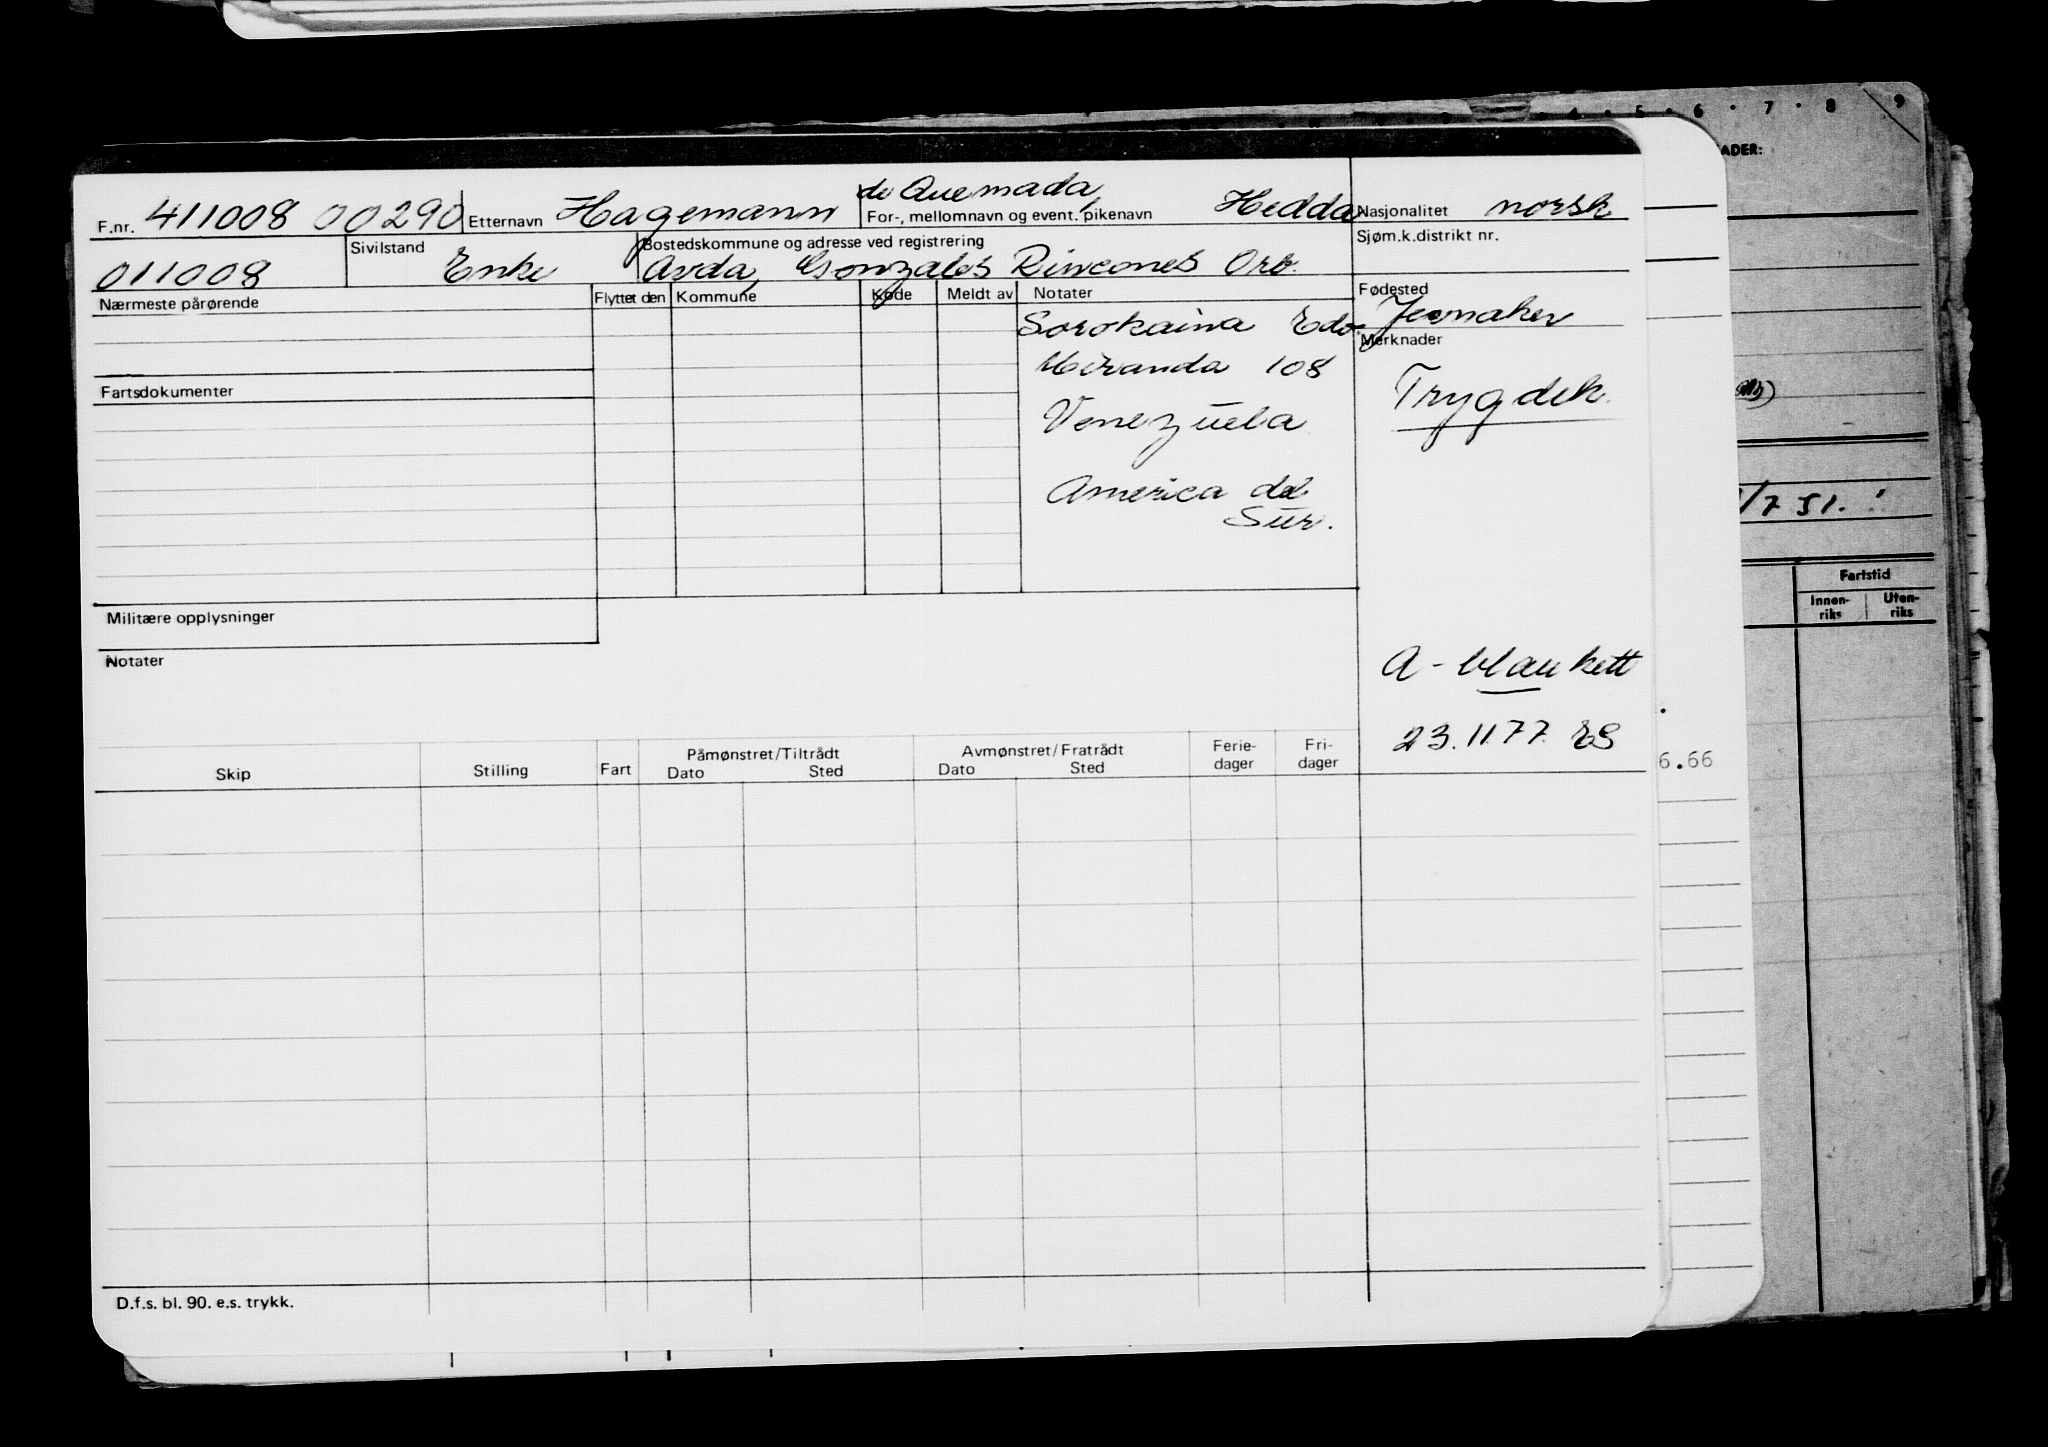 4 · 5 · 6 · 7 · 8 9
ADER:
F.nr. 411008 00290 Etternavn Hagemann de Quemada, For-, mellomnavn og event. pikenavn Hedda Nasjonalitet norsk
011008 Sivilstand Enke Bostedskommune og adresse ved registrering Sjøm.k.distrikt nr.
Avda, Gonzales Rincones Orb.
Nærmeste pårørende Flyttet den Kommune Kode Meldt av Notater Fødested
Sorokaina Edo Jesmaker
Merknader
Miranda 108
Fartsdokumenter Trygdek.
Venezuela
America del
Sur.
1/7 51.
Fartstid
Innen-riks Uten-riks
Militære opplysninger
Notater
A - blankett
23.11.77. ES
Skip Stilling Fart Påmønstret/Tiltrådt Dato Sted Avmønstret/Fratrådt Dato Sted Ferie-dager Fri-dager
6.66
D.f.s. bl. 90. e.s. trykk.